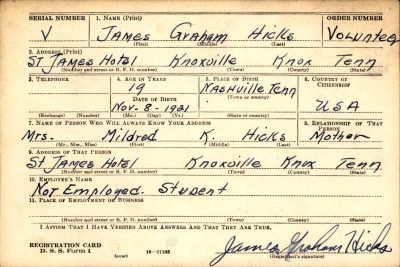 SERIAL NUMBER 1. NAME (Print) ORDER NUMBER
V James Graham Hicks Volunteer
(First) (Middle) (Last)
2. ADDRESS (Print)
St James Hotel Knoxville Knox Tenn
(Number and street or R. F. D. number) (Town) (County) (State)
3. TELEPHONE 4. AGE IN YEARS 5. PLACE OF BIRTH 6. COUNTRY OF CITIZENSHIP
19 Nashville Tenn
DATE OF BIRTH (Town or county)
Nov. 8 - 1921 USA
(Exchange) (Number) (Mo.) (Day) (Yr.) (State or country)
7. NAME OF PERSON WHO WILL ALWAYS KNOW YOUR ADDRESS 8. RELATIONSHIP OF THAT PERSON
Mrs. Mildred K. Hicks Mother
(Mr., Mrs., Miss) (First) (Middle) (Last)
9. ADDRESS OF THAT PERSON
St James Hotel Knoxville Knox Tenn.
(Number and street or R. F. D. number) (Town) (County) (State)
10. EMPLOYER'S NAME
Not Employed. Student
11. PLACE OF EMPLOYMENT OR BUSINESS
(Number and street or R. F. D. number) (Town) (County) (State)
I AFFIRM THAT I HAVE VERIFIED ABOVE ANSWERS AND THAT THEY ARE TRUE.
REGISTRATION CARD
D. S. S. Form 1 (over) 16—17105 James Graham Hicks
(Registrant's signature)